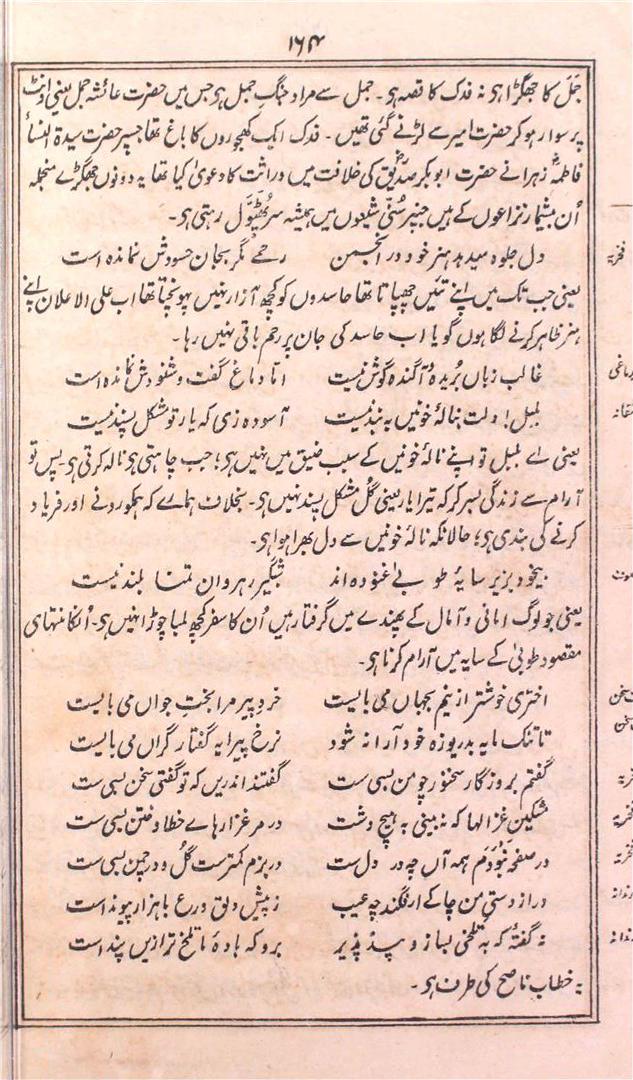 ۱۶۴
جَمل کا جھگڑا ہو نہ فدک کا قصہ ہو۔ جمل سے مراد جنگِ جمل ہو جس میں حضرت عائشہ جمل یعنی اونٹ
پر سوار ہو کر حضرت امیر سے لڑنے گئی تھیں۔ فدک ایک کھجوروں کا باغ تھا جسپر حضرت سیدۃ النسأ
فاطمہ زہرا نے حضرت ابوبکر صدیق کی خلافت میں وراثت کا دعویٰ کیا تھا یہ دونوں جھگڑے منجملہ
اُن بیشمار نزاعوں کے ہیں جنپر سُنّی شیعوں میں ہمیشہ سر پُھٹوّل رہتی ہو۔
دل جلوہ میدہد ہنر خود در انجمن رحمے مگر بجان حسودش نماندہ است
فخریہ
یعنی جب تک میں اپنے تئیں چھپاتا تھا حاسدوں کو کچھ آزار نہیں پہونچتا تھا اب علی الاعلان اپنے
ہنر ظاہر کرنے لگا ہوں گویا اب حاسد کی جان پر رحم باقی نہیں رہا۔
غالب زباں بُریدہ و آگندہ گوش نیست امّا دماغِ گفت و شنودش نماندہ است
بلبل! دلت بنالۂ خونیں بہ بند نیست آسودہ زی کہ یارِ تو مشکل پسند نیست
یعنی اے بلبل تو اپنے نالۂ خونیں کے سبب ضیق میں نہیں ہو؛ جب چاہتی ہو نالہ کرتی ہو۔ پس تو
آرام سے زندگی بسر کر کہ تیرا یار یعنی گُل مشکل پسند نہیں ہو۔ بخلاف ہمارے کہ ہمکو رونے اور فریاد
کرنے کی بندی ہو؛ حالانکہ نالۂ خونیں سے دل بھرا ہوا ہو۔
بیخود بزیرِ سایۂ طوبےٰ غنودہ اند شبگیرِ رہروانِ تمنا بلند نیست
یعنی جو لوگ امانی و آمال کے پھندے میں گرفتار ہیں اُن کا سفر کچھ لمبا چوڑا نہیں ہو۔ اُنکا منتہای
مقصود طوبیٰ کے سایہ میں آرام کرنا ہو۔
اختری خوشتر ازینم بجہاں می بایست خردِ پیرِ مرا بختِ جواں می بایست
تا تنک مایہ بدریوزہ خود آرا نہ شود نرخِ پیرایۂ گفتار گراں می بایست
گفتم بروزگار سخنور چو من بسی ست گفتند اندریں کہ تو گفتی سخن بسی ست
مشکین غزالہا کہ نہ بینی بہ ہیچ دشت در مرغزارہاے خطا و ختن بسی ست
در صفحہ نبْوَدم ہمہ آں چہ در دل ست در بزم کمترست گُل و در چمن بسی ست
دراز دستیِ من چاکے ار فگند چہ عیب ز پیش دلقِ ورع با ہزار پیوند است
نہ گفتۂ کہ بہ تلخی بساز و پند پذیر برو کہ بادۂ ما تلخ تر ازیں پند است
یہ خطاب ناصح کی طرف ہو۔